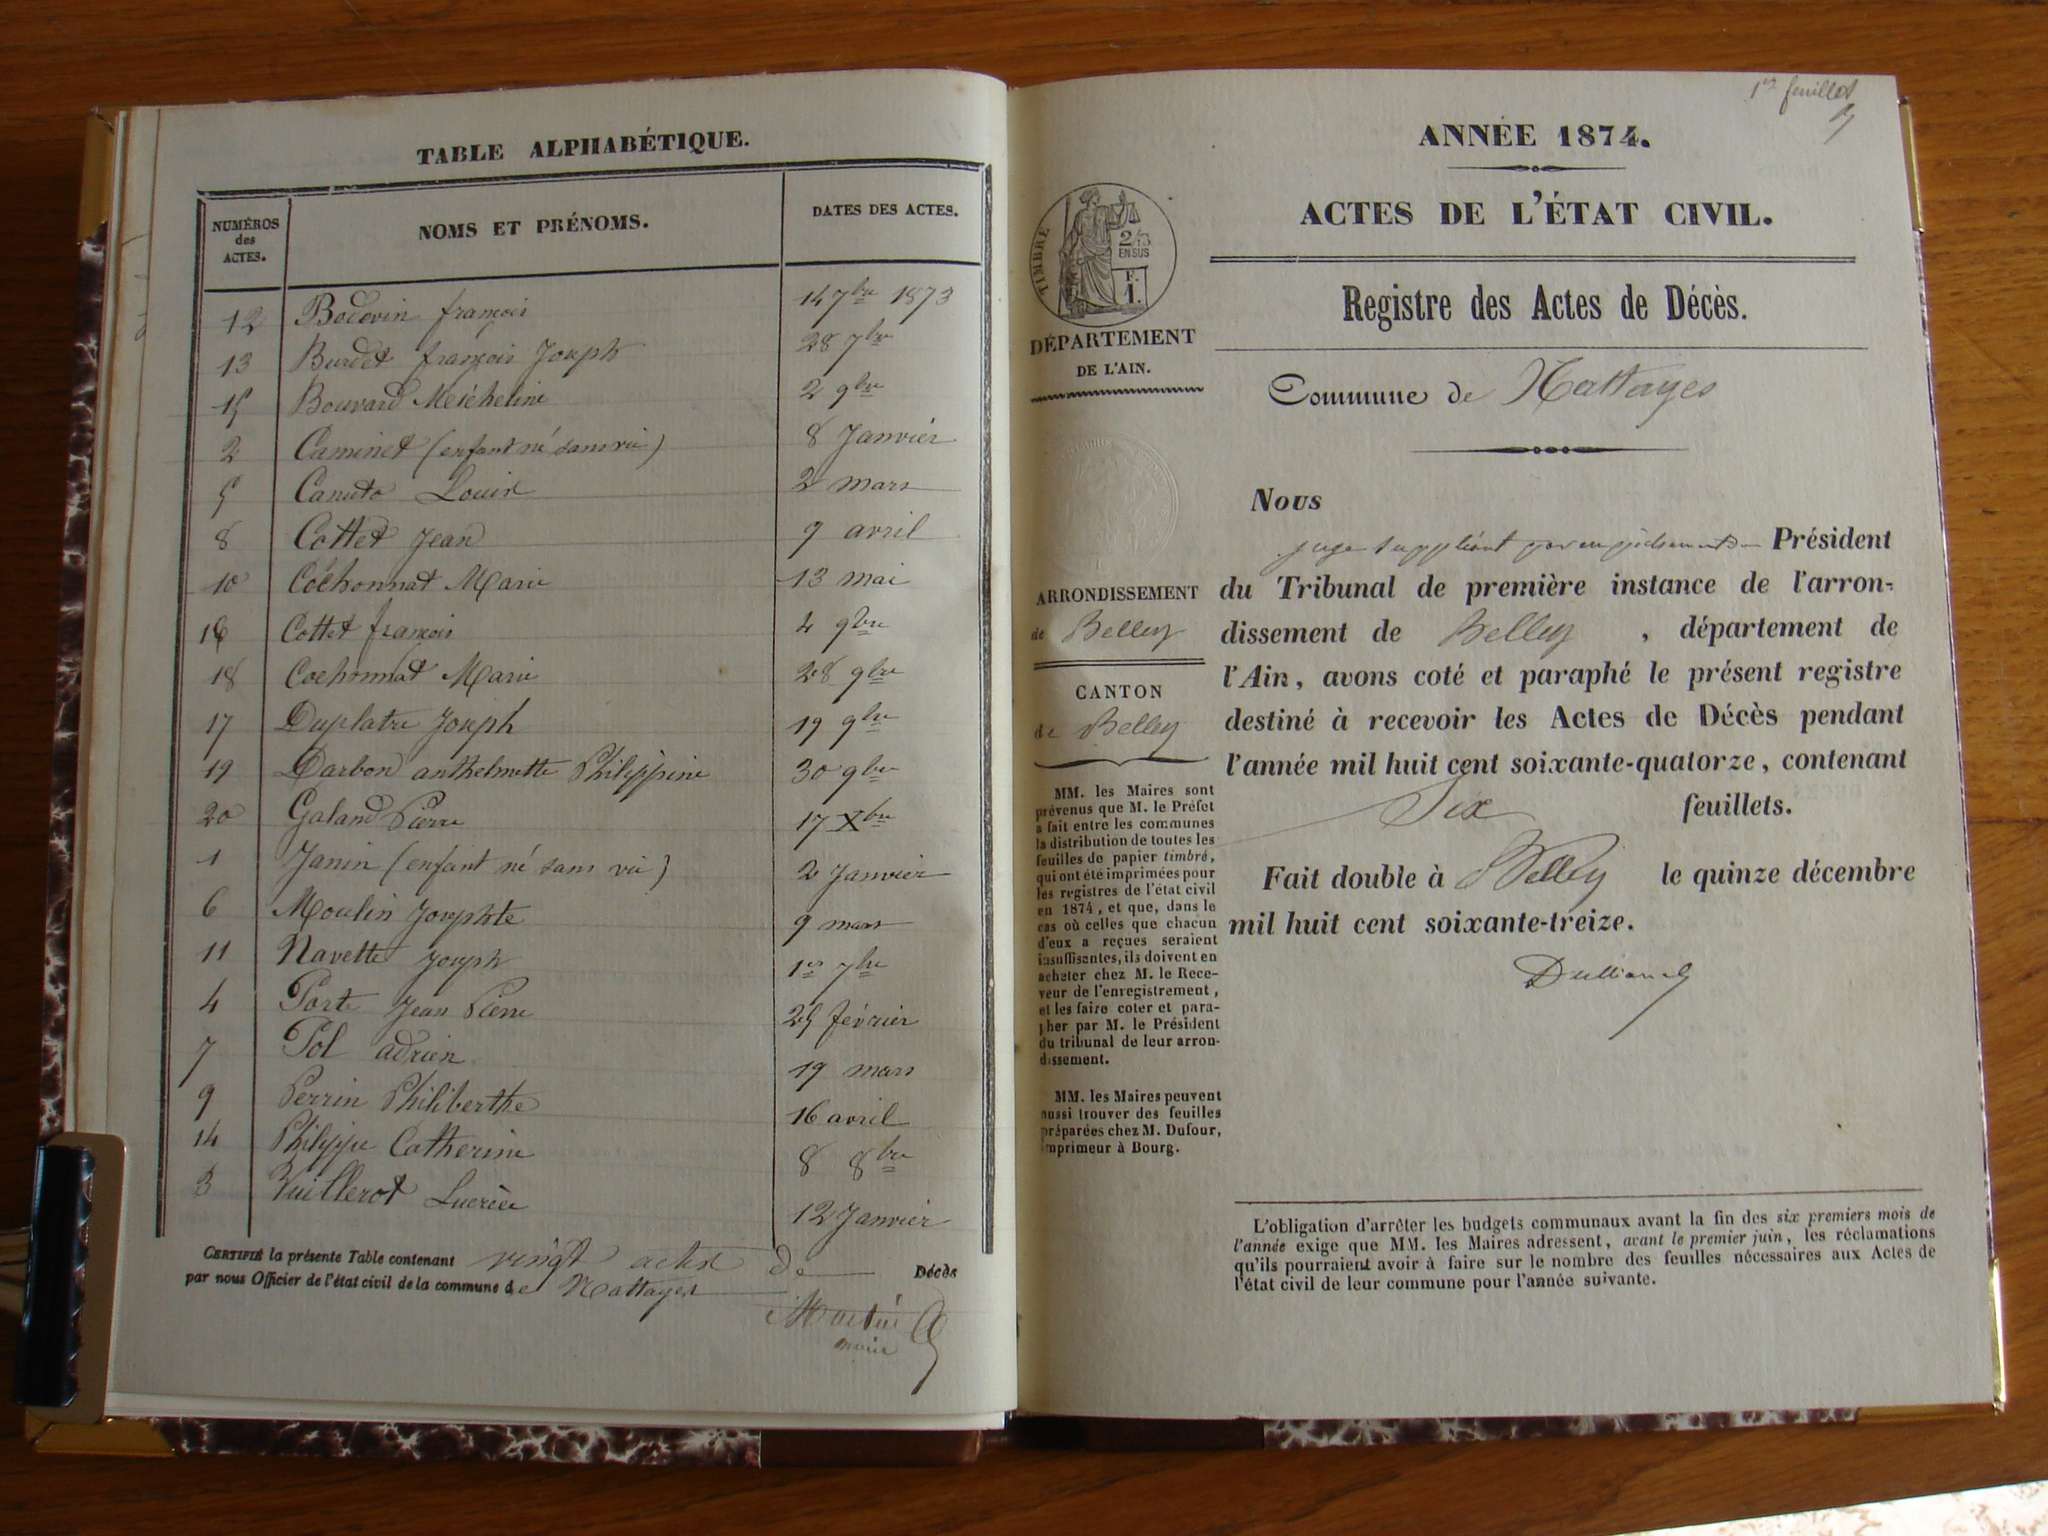 TABLE ALPHABÉTIQUE.
NUMÉROS des ACTES. NOMS ET PRÉNOMS. DATES DES ACTES.
12 Bodevin françois 14 7bre 1873
13 Burdet françois Joseph 28 7bre
15 Bouvard Meicheline 2 9bre
2 Caminet (enfant né sans vie) 8 Janvier
5 Canuto Louise 2 mars
8 Cottet Jean 9 avril
10 Cochonnat Marie 13 mai
16 Cottet françois 4 9bre
18 Cochonnat Marie 28 9bre
17 Duplatre Joseph 19 9bre
19 Darbon anthelmette Philippine 30 9bre
20 Galand Pierre 17 Xbre
1 Janin (enfant né sans vie) 2 Janvier
6 Moulin Josephte 9 mars
11 Navette Joseph 1er 7bre
4 Porte Jean Pierre 25 février
7 Pol adrien 19 mars
9 Perrin Philiberthe 16 avril
14 Philippe Catherine 8 8bre
3 Vuillerot Lucrèce 12 Janvier
CERTIFIÉ la présente Table contenant vingt actes De Décès
par nous Officier de l'état civil de la commune de Nattages
maire
1er feuillet
ANNÉE 1874.
ACTES DE L'ÉTAT CIVIL.
Registre des Actes de Décès.
Commune de Nattages
TIMBRE
2/10 EN SUS
F.
1.
DÉPARTEMENT
DE L'AIN.
ARRONDISSEMENT
de Belley
CANTON
de Belley
MM. les Maires sont
prévenus que M. le Préfet
a fait entre les communes
la distribution de toutes les
feuilles de papier timbré,
qui ont été imprimées pour
les registres de l'état civil
en 1874, et que, dans le
cas où celles que chacun
d'eux a reçues seraient
insuffisantes, ils doivent en
acheter chez M. le Rece-
veur de l'enregistrement,
et les faire coter et para-
pher par M. le Président
du tribunal de leur arron-
dissement.
MM. les Maires peuvent
aussi trouver des feuilles
préparées chez M. Dufour,
imprimeur à Bourg.
Nous
juge suppléant par empêchement du Président
du Tribunal de première instance de l'arron-
dissement de Belley, département de
l'Ain, avons coté et paraphé le présent registre
destiné à recevoir les Actes de Décès pendant
l'année mil huit cent soixante-quatorze, contenant
Six feuillets.
Fait double à Belley le quinze décembre
mil huit cent soixante-treize.
L'obligation d'arrêter les budgets communaux avant la fin des six premiers mois de
l'année exige que MM. les Maires adressent, avant le premier juin, les réclamations
qu'ils pourraient avoir à faire sur le nombre des feuilles nécessaires aux Actes de
l'état civil de leur commune pour l'année suivante.